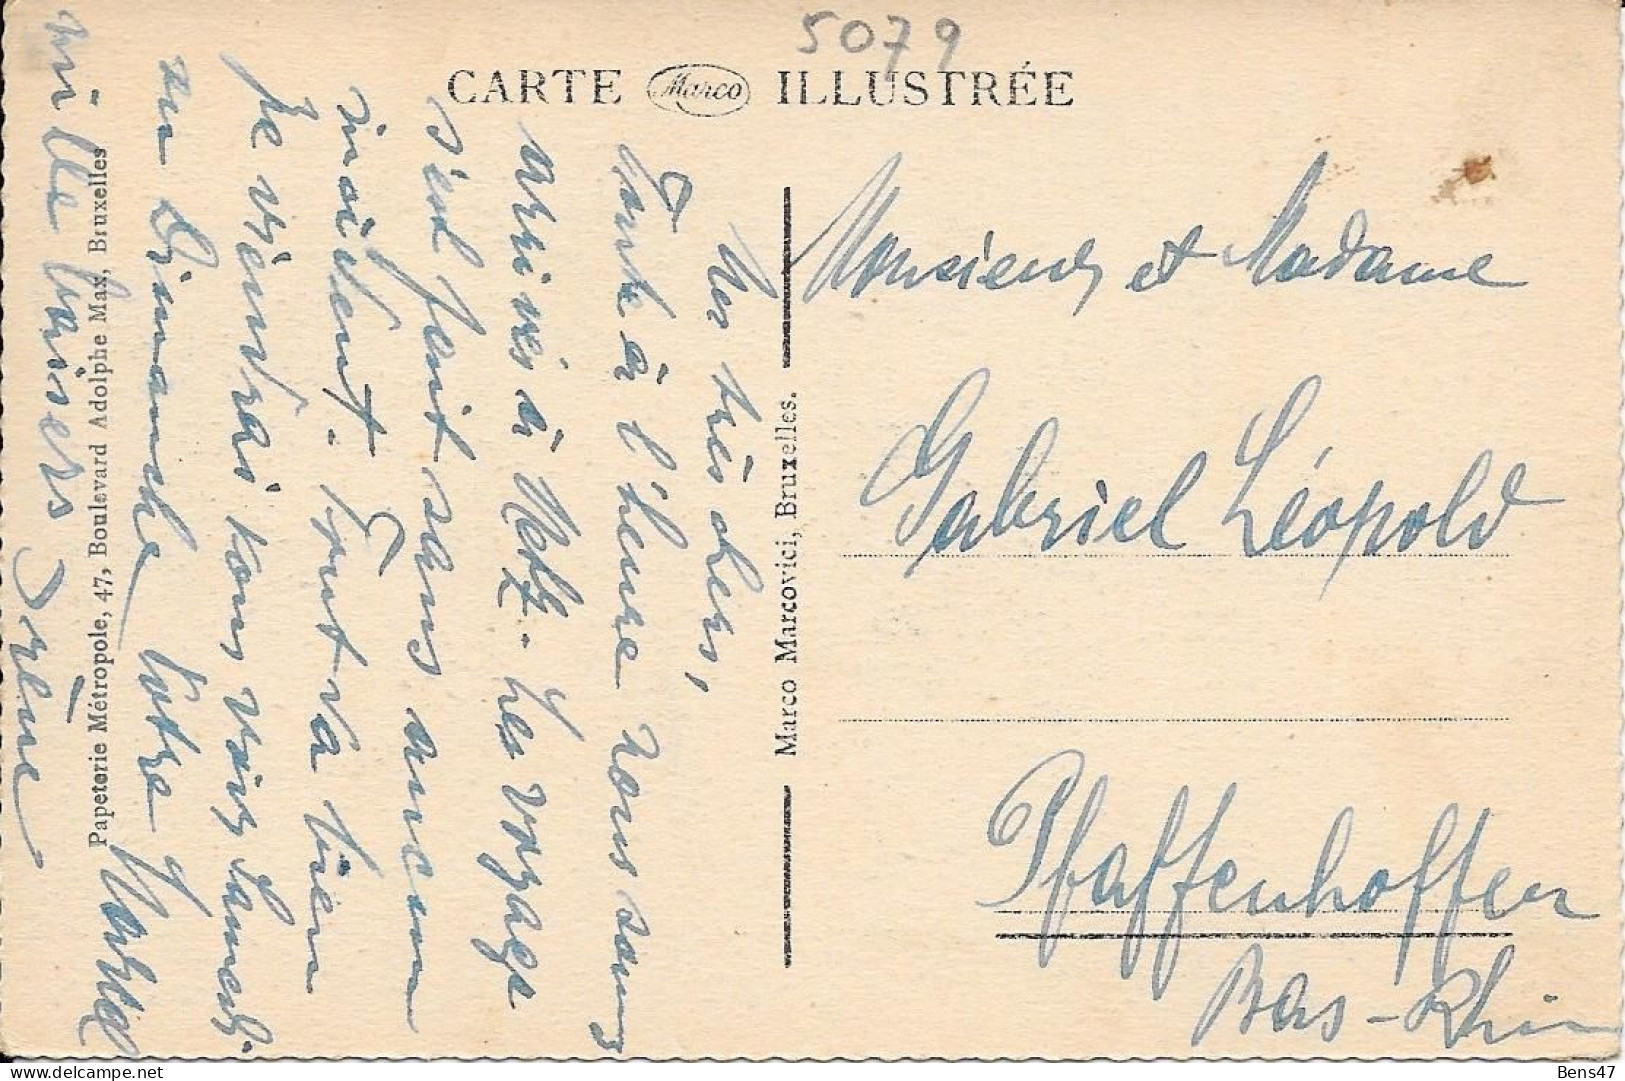 5079
CARTE Marco ILLUSTRÉE
Mes très chers,
Toute à l'heure nous sommes
arrivés à Metz. Le voyage
s'est fait sans aucun
incident. Tout va bien
Je viendrai vous voir Samedi
ou Dimanche Votre Marcel
mille baisers Irène
Marco Marcovici, Bruxelles.
Papeterie Métropole, 47, Boulevard Adolphe Max, Bruxelles
Monsieur et Madame
Gabriel Léopold
Pfaffenhoffen
Bas-Rhin
Bens47